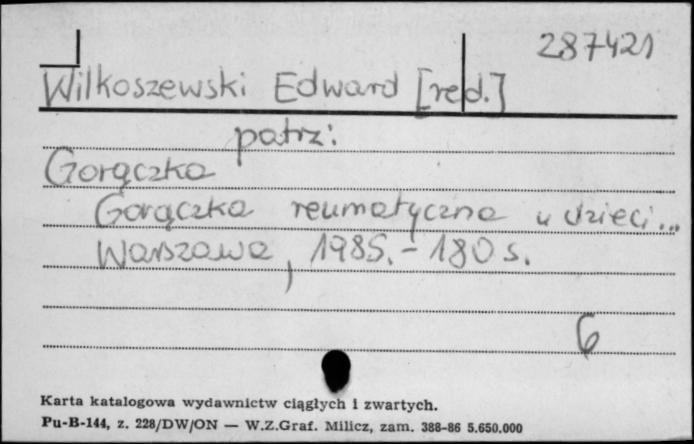 287421
Wilkoszewski Edward [red.]
patrz:
Gorączka
Gorączka reumatyczna u dzieci...
Warszawa, 1985. - 180 s.
6
Karta katalogowa wydawnictw ciągłych i zwartych.
Pu-B-144, z. 228/DW/ON — W.Z.Graf. Milicz, zam. 388-86 5.650.000